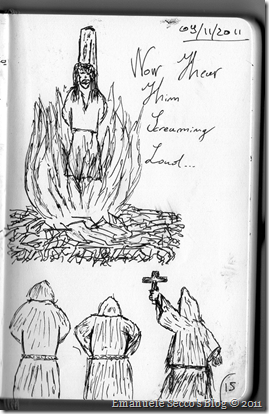 09/11/2011
Now I hear
Him
Screaming
Loud...
15
Emanuele Secco's Blog © 2011